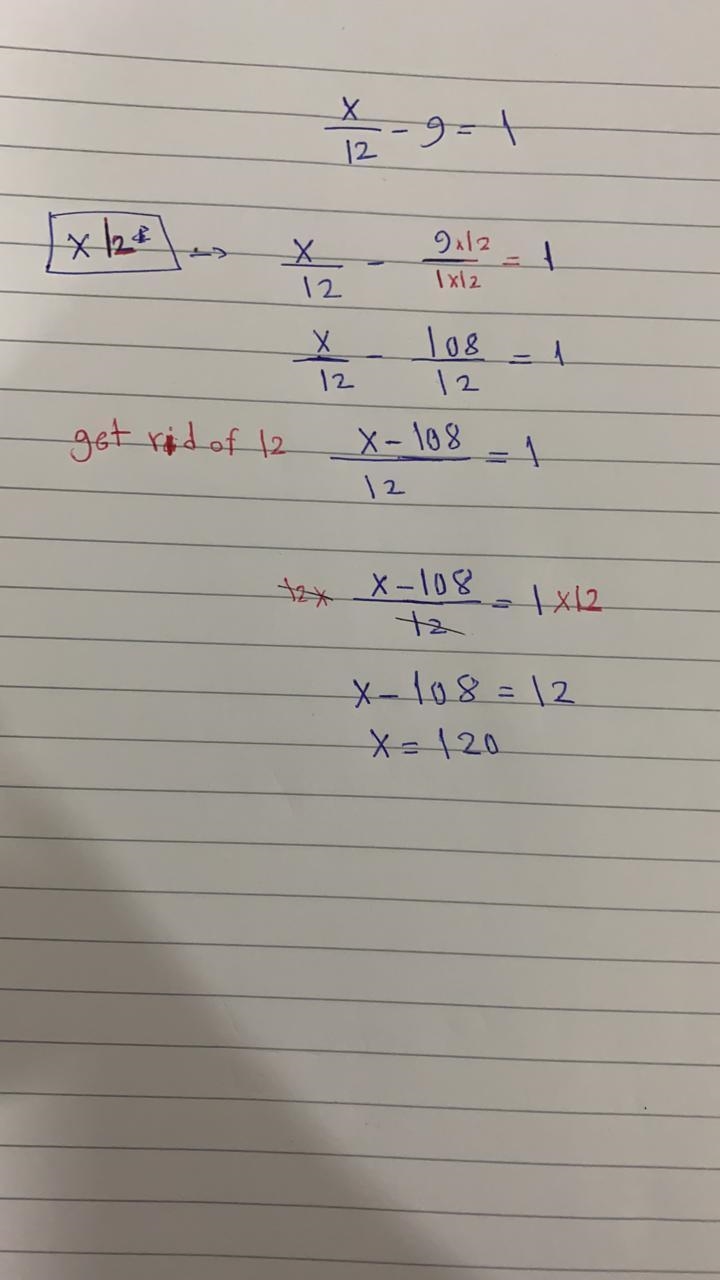 x/12 - 9 = 1
x 12 → x/12 - 9x12/1x12 = 1
x/12 - 108/12 = 1
get rid of 12 x-108/12 = 1
12x x-108/12 = 1 x12
x-108 = 12
x = 120